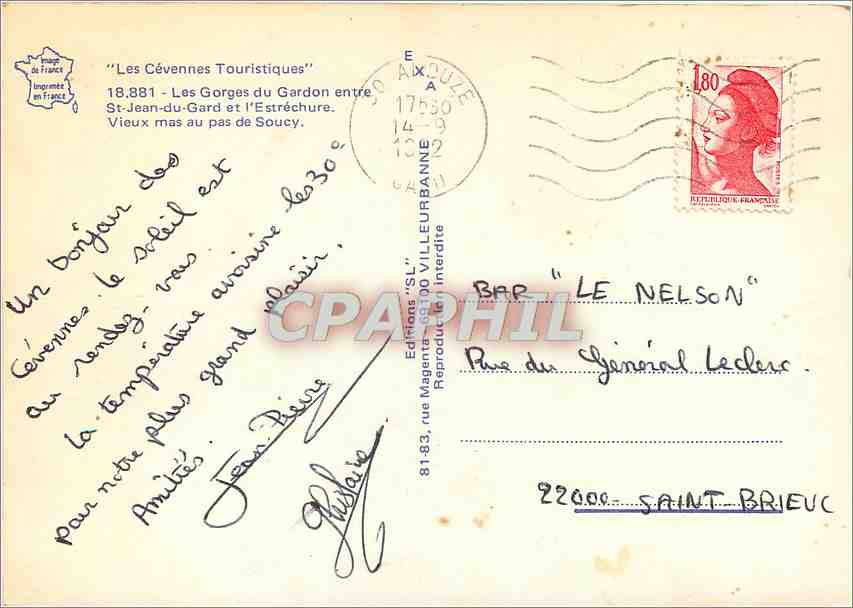 Image
de France
Imprimée
en France
"Les Cévennes Touristiques"
18.881 - Les Gorges du Gardon entre
St-Jean-du-Gard et l'Estréchure.
Vieux mas au pas de Soucy.
Un bonjour des
Cévennes le soleil est
au rendez-vous.
La température avoisine les 30°
pour notre plus grand plaisir.
Amitiés.
Jean-Pierre
Ghislaine
EXA
Editions "SL"
81-83, rue Magenta - 69100 VILLEURBANNE
Reproduction interdite
ANDUZE
17h30
14-9
GARD
1,80
REPUBLIQUE-FRANÇAISE
BAR "LE NELSON"
Rue du Général Leclerc.
22000 - SAINT-BRIEUC
CPAPHIL